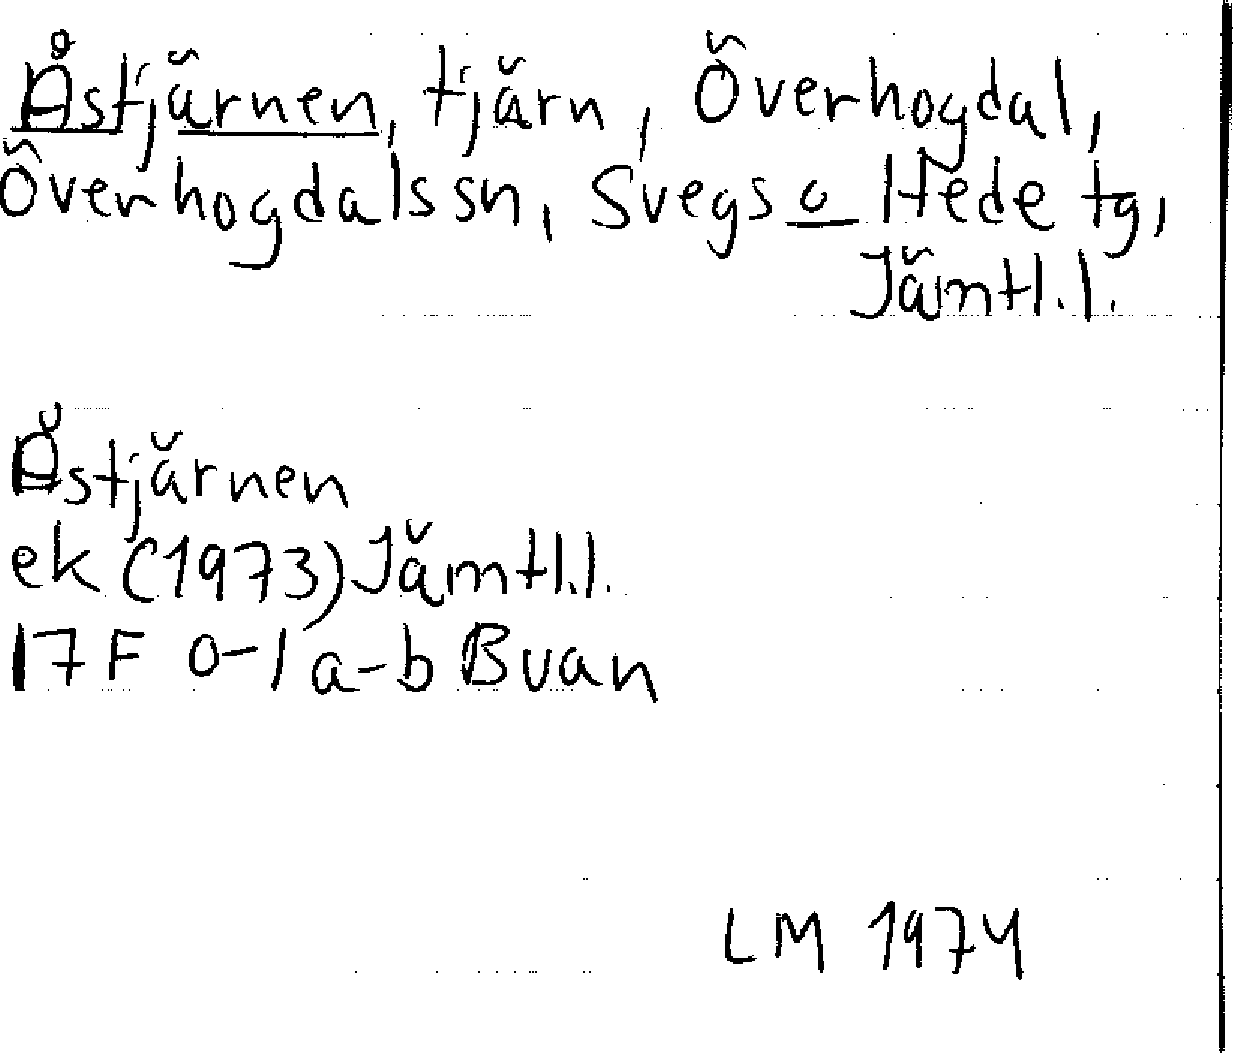 Åstjärnen, tjärn, Överhogdal,
Överhogdals sn, Svegs o Hede tg,
Jämtl. l.
Åstjärnen
ek (1973) Jämtl. l.
17F 0-1 a-b Buan
LM 1974